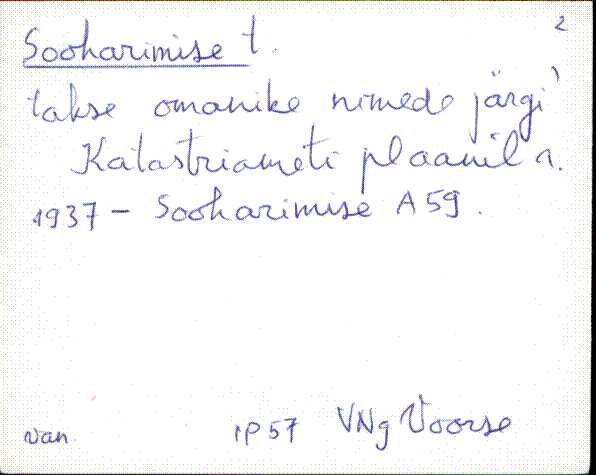 2
Sooharimise t.
takse omanike nimede järgi'
Katastriameti plaanil a.
1937 – Sooharimise A 59.
van
IP 57 VNg Voorse